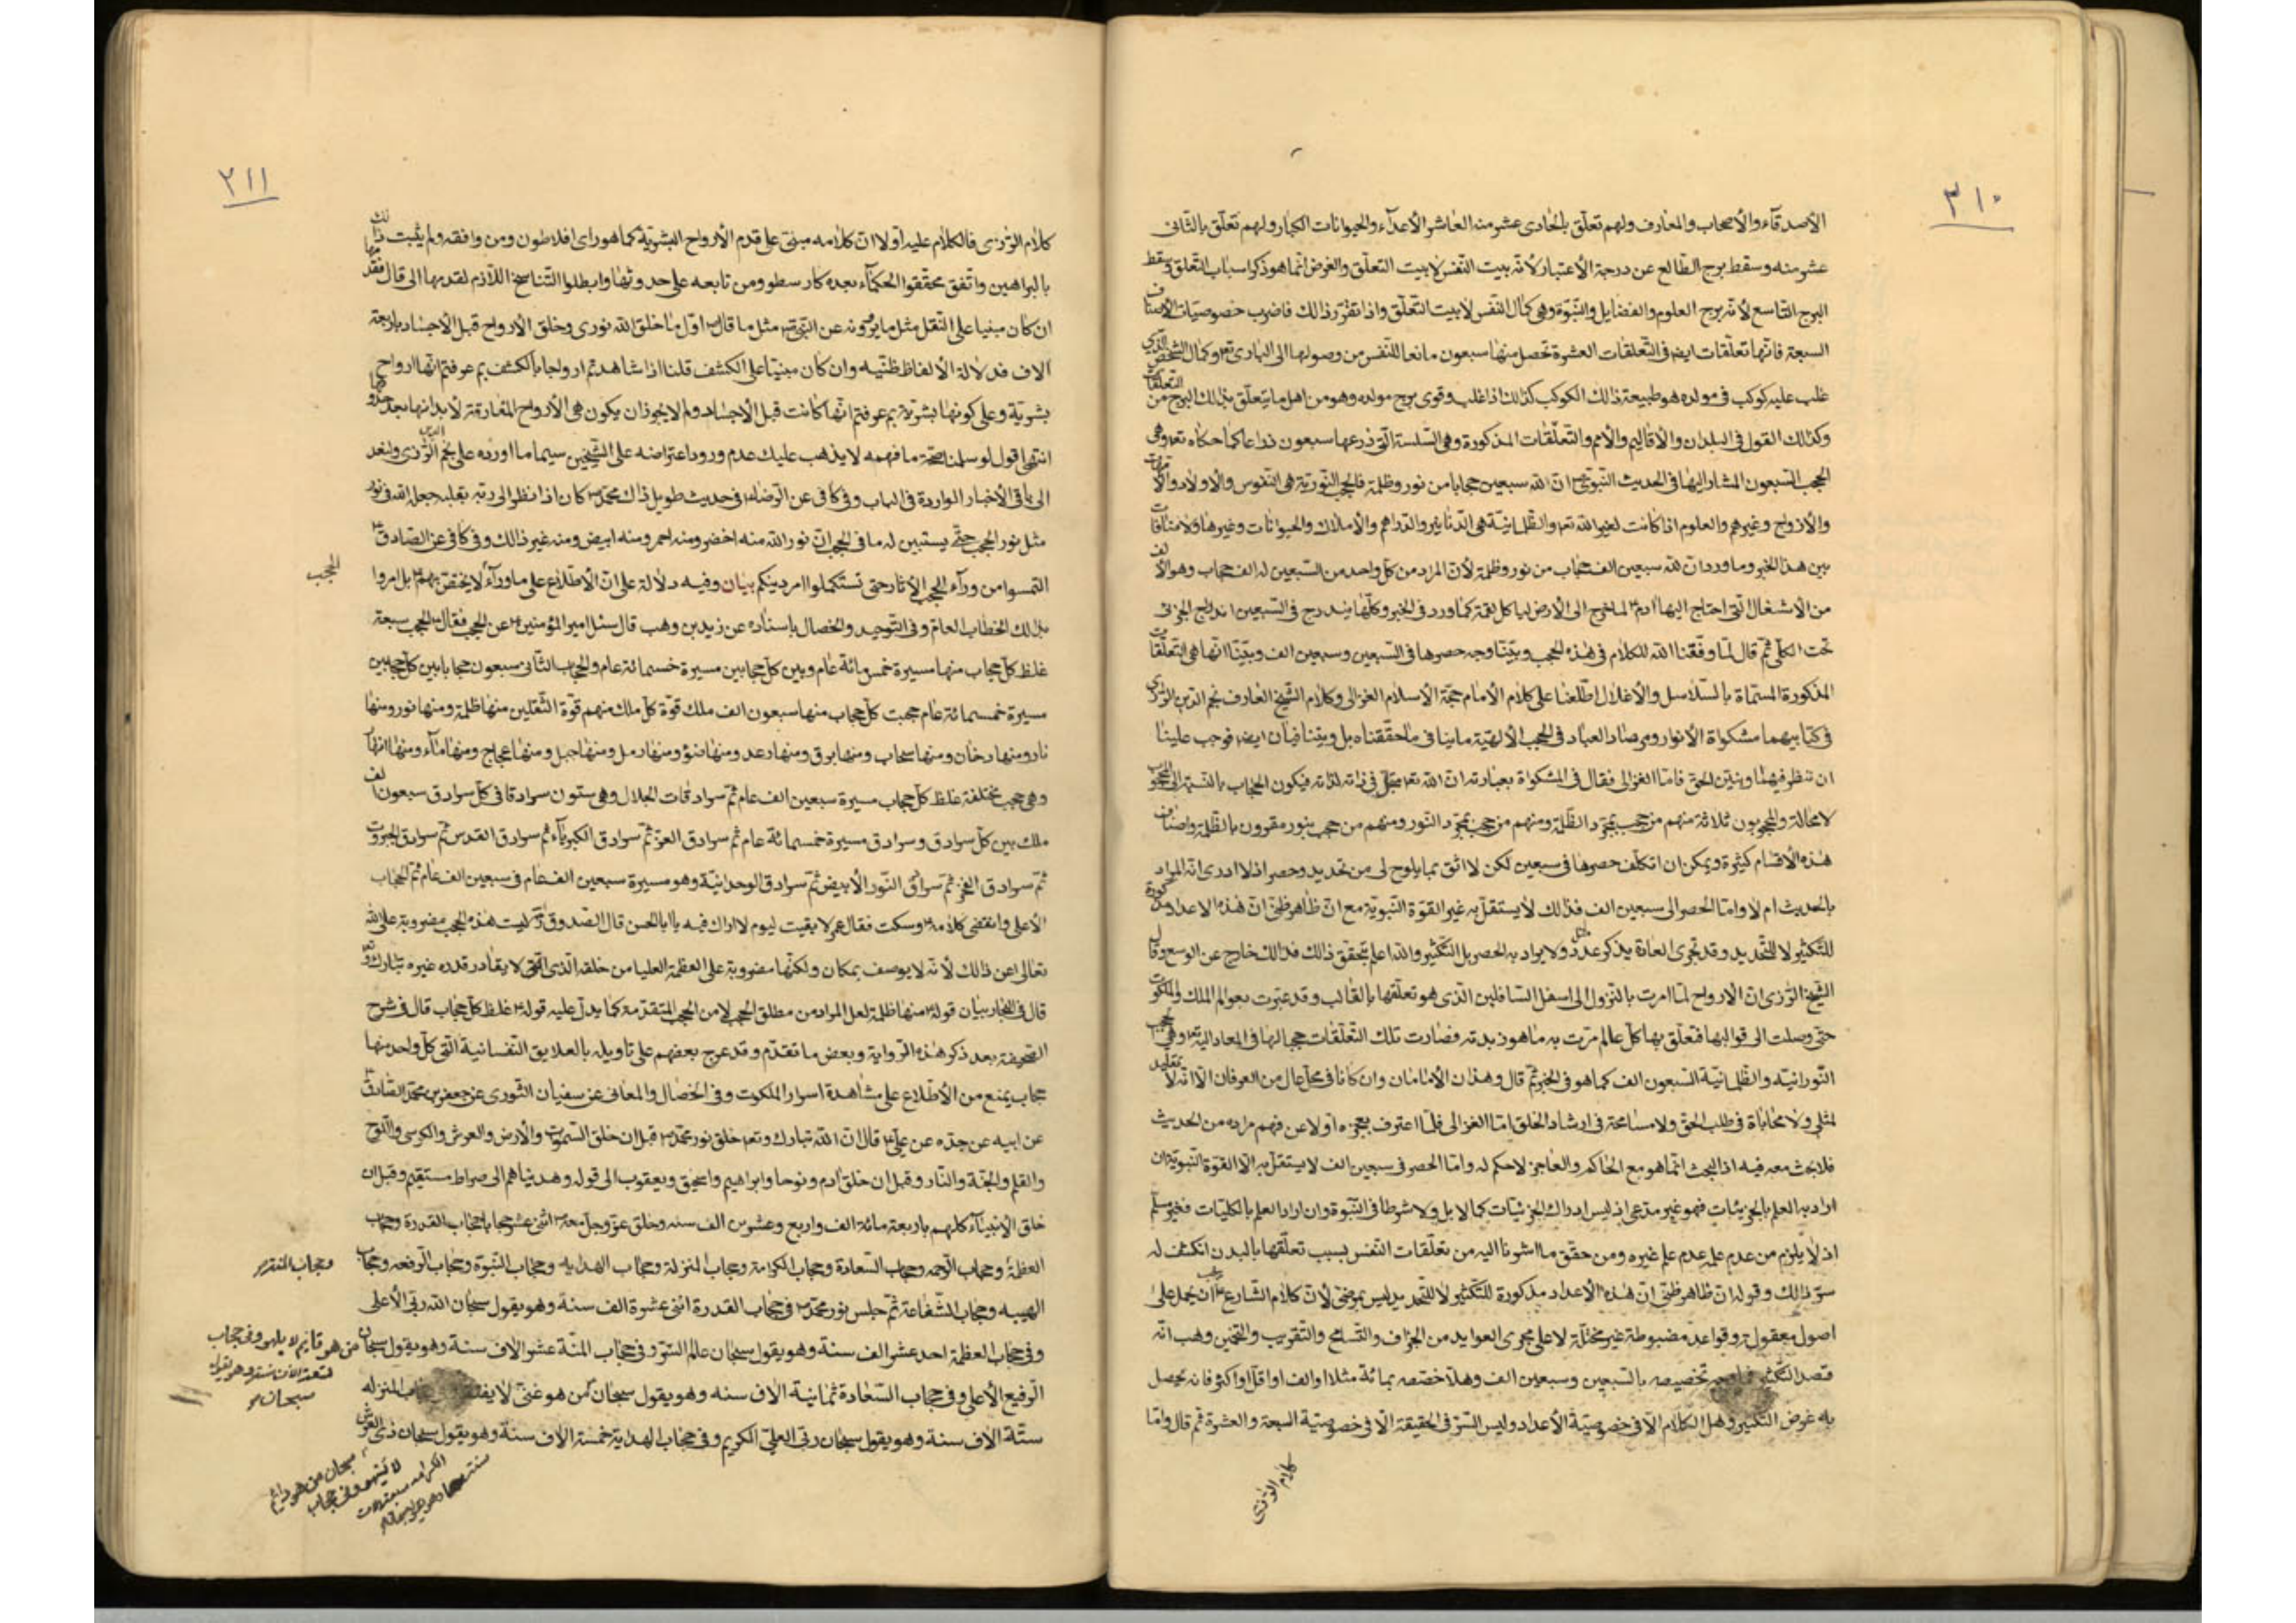 ٣١٠
الأصدقآء والأصحاب والمعارف ولهم تعلّق بالحادى عشر منه العاشر الأعدآء والحيوانات الكبار ولهم تعلّق بالثّانى
عشر منه وسقط برج الطّالع عن درجة الأعتبار لأنّه بيت النّفس لا بيت التعلّق والغرض انّما هو ذكر اسباب التّعلّق وسقط
البرج التّاسع لأنّه برج العلوم والفضايل والنّبوّة وهى كمال النّفس لا بيت التّعلّق واذا تقرّر ذالك فاضرب خصوصيّات الأصناف
السبعة فانّها تعلّقات ايضا فى التّعلقات العشرة تحصل منها سبعون مانعا للنّفس من وصولها الى البارى تع وكمال الشّخص الّذي
غلب عليه كوكب فى مولده هو طبيعة ذالك الكوكب كذالك اذا غلب وقوى برج مولده وهو من اهل ما يتعلّق بذلك البرج من التعلّقات
وكذالك القول فى البلدان والأقاليم والأمم والتّعلّقات المذكورة وهى السّلسة الّتى ذرعها سبعون ذراعا كما حكاه تع وهى
الحجب السّبعون المشار اليها فى الحديث النّبوىّ انّ لله سبعين حجابا من نور وظلمة فالحجب النّوريّة هى النّفوس والأولاد والأمّهات
والأزواج وغيرهم والعلوم اذا كانت لغير الله تع والظّلمانيّة هى الدّنانير والدّراهم والأملاك والحيوانات وغيرها ولا منافات
بين هذا الخبر وما ورد انّ لله سبعين الف حجاب من نور وظلمة لأنّ المراد من كلّ واحد من السّبعين له الف حجاب وهو الألف
من الأشغال الّتى احتاج اليها ادم لمّا خرج الى الأرض ليأكل لقمة كما ورد فى الخبر وكلّها يندرج فى السّبعين اندراج الجزئى
تحت الكلّى ثمّ قال لمّا وفّقنا الله للكلام فى هذه الحجب وبيّنّا وجه حصرها فى السّبعين وسبعين الف وبيّنّا انّها هى التّعلّقات
المذكورة المسمّاة بالسّلاسل والأغلال اطّلعنا على كلام الأمام حجّة الأسلام الغزالى وكلام الشّيخ العارف نجم الدّين الرّزى
فى كتابيهما مشكواة الأنوار ومرصاد العباد فى الحجب الألهيّة ما ينافى ما حقّقناه بل ويتنافيان ايضا فوجب علينا
ان ننظر فيهما ونبيّن الحقّ فامّا الغزالى فقال فى المشكواة بعبارته انّ الله تع متجلّ فى ذاته لذاته فيكون الحجاب بالنّسبة الى المحجوب
لا محالة والمحجوبون ثلاثة منهم من حجب بمجرّد الظّلمة ومنهم من حجب بمجرّد النّور ومنهم من حجب بنور مقرون بالظّلمة واصناف
هذه الأقسام كثيرة ويمكن ان اتكلّف حصرها فى سبعين لكن لا اثق بما يلوح لى من تحديد وحصر اذ لا ادرى انّه المراد
بالحديث ام لا وامّا الحصر الى سبعين الف فذالك لا يستقلّ به غير القوّة النّبويّة مع انّ ظاهر ظنّى انّ هذه الاعداد مذكورة
للتّكثير لا للتّحديد وقد تجرى العادة بذكر عدد ولا يراد به الحصر بل التّكثير والله اعلم بتحقّق ذالك فذالك خارج عن الوسع وقال
الشّيخ الرّزى انّ الارواح لمّا امرت بالنّزول الى اسفل السّافلين الّذى هو تعلّقها بالقالب وقد عبرت بعوالم الملك والملكوت
حتّى وصلت الى قوالبها فتعلّق بها كلّ عالم مرّت به ما هو زبدته فصارت تلك التّعلّقات حجبا لها فى المعاد اليه وهى الحجب
النّورانيّه والظّلمانيّة السّبعون الف كما هو فى الخبر ثمّ قال وهذان الأمامان وان كانا فى محلّ عال من العرفان الّا انّه لا تقليد
لمثلى ولا محاباة فى طلب الحقّ ولا مسامحة فى ارشاد الخلق امّا الغزالى فلمّا اعترف بعجزه اوّلا عن فهم مراده من الحديث
فلا بحث معه فيه اذ البحث انّما هو مع الحاكم والعاجز لا حكم له وامّا الحصر فى سبعين الف لا يستقلّ به الّا القوّة النّبويّة ان
اراد به العلم بالجزئيّات فهو غير مدّعى اذ ليس ادراك الجزئيّات كمالا بل ولا شرطا فى النّبوّة وان اراد العلم بالكليّات فغير مسلّم
اذ لا يلزم من عدم علمه عدم علم غيره ومن حقّق ما اشرنا اليه من تعلّقات النّفس بسبب تعلّقها بالبدن انكشف له
سرّ ذالك وقوله انّ ظاهر ظنّى انّ هذه الأعداد مذكورة للتّكثير لا للتّحديد ليس بمرضىّ لأنّ كلام الشّارع يجب ان يحمل على
اصول معقولة وقواعد مضبوطة غير مختلّة لا على مجرى العوايد من الجزاف والتّسامح والتّقريب والتّخمين وهب انّه
قصد التّكثير فما وجه تخصيصه بالسّبعين وسبعين الف وهلّا خصّصه بمائة مثلا او الف او اقلّ او اكثر فانّه يحصل
به غرض التّكثير وهل الكلام الّا فى خصوصيّة الأعداد وليس السّرّ فى الحقيقة الّا فى خصوصيّة السبعة والعشرة ثمّ قال وامّا
كلام الرّزى
٣١١
كلام الرّزى فالكلام عليه اوّلا انّ كلامه مبنىّ على قدم الأرواح البشريّة كما هو راى افلاطون ومن وافقه ولم يثبت ذالك
بالبراهين واتّفق محقّقوا الحكمآء بعده كارسطو ومن تابعه على حدوثها وابطلوا التّناسخ اللّازم لقدمها الى قال فقدمها
ان كان مبنيا على النّقل مثل ما يروونه عن النّبىّ مثل ما قال اوّل ما خلق الله نورى وخلق الأرواح قبل الأجساد باربعة
الاف فدلالة الألفاظ ظنّيه وان كان مبنيّا على الكشف قلنا اذا شاهدتم ارواحا بالكشف بم عرفتم انّها ارواح
بشريّة وعلى كونها بشريّة بم عرفتم انّها كانت قبل الأجساد ولم لا يجوز ان يكون هى الأرواح المفارقة لأبدانها بعد حدوثها
انتهى اقول لو سلمنا صحّة ما فهمه لا يذهب عليك عدم ورود اعتراضه على الشّيخين سيما ما اورده على نجم الدين الرّزى ولنعد
الى باقى الأخبار الواردة فى الباب وفى كافى عن الرّضا فى حديث طويل ذاك محمّد كان اذا نظر الى ربّه بقلبه جعل الله فى نور
مثل نور الحجب حتّى يستبين له ما فى الحجب انّ نور الله منه اخضر ومنه احمر ومنه ابيض ومنه غير ذالك وفى كافى عن الصّادق
التمسوا من ورآء الحجب الأثار حتى تستكملوا امر دينكم بيان وفيه دلالة على انّ الأطّلاع على ما ورآء لا يختصّ بهم بل امروا
الحجب
بذلك الخطاب العامّ وفى التّوحيد والخصال باسناده عن زيد بن وهب قال سئل امير المؤمنين عن الحجب فقال الحجب سبعة
غلظ كلّ حجاب منها مسيرة خمسمائة عام وبين كلّ حجابين مسيرة خمسمائة عام والحجاب الثّانى سبعون حجابا بين كلّ حجابين
مسيرة خمسمائة عام حجبت كلّ حجاب منها سبعون الف ملك قوّة كلّ ملك منهم قوّة الثّقلين منها ظلمة ومنها نور ومنها
نار ومنها دخان ومنها سحاب ومنها برق ومنها رعد ومنها ضؤ ومنها رمل ومنها جبل ومنها عجاج ومنها مآء ومنها انهار
وهى حجب مختلفة غلظ كلّ حجاب مسيرة سبعين الف عام ثمّ سرادقات الجلال وهى ستون سرادقا فى كلّ سرادق سبعون الف
ملك بين كلّ سرادق وسرادق مسيرة خمسمائة عام ثم سرادق العزّ ثمّ سرادق الكبريآء ثم سرادق القدس ثمّ سرادق الجبروت
ثمّ سرادق الفخر ثمّ سرادق النّور الأبيض ثمّ سرادق الوحدانيّة وهو مسيرة سبعين الف عام فى سبعين الف عام ثمّ الحجاب
الأعلى وانقضى كلامه وسكت فقال عمر لا بقيت ليوم لا اراك فيه يا ابا الحسن قال الصّدوق ليست هذه الحجب مضروبة على الله
تعالى عن ذالك لأنّه لا يوصف بمكان ولكنّها مضروبة على العظمة العليا من خلقه الّذى الّتى لا يقادر قدده غيره تبارك وتع
قال فى البحار بيان قوله منها ظلمة لعل المراد من مطلق الحجب لا من الحجب المتقدّمة كما يدلّ عليه قوله غلظ كلّ حجاب قال فى شرح
الصّحيفة بعد ذكر هذه الرّواية وبعض ما تقدّم وقد عرج بعضهم على تاويله بالعلايق النّفسانية الّتى كلّ واحد منها
حجاب يمنع من الأطّلاع على مشاهدة اسرار الملكوت وفى الخصال والمعانى عن سفيان الثّورى عن جعفر بن محمّد الصّادق
عن ابيه عن جدّه عن علىّ قال انّ الله تبارك وتع خلق نور محمّد قبل ان خلق السّموات والأرض والعرش والكرسى واللّوح
والقلم والجنّة والنّار وقبل ان خلق ادم ونوحا وابراهيم واسحق ويعقوب الى قوله وهديناهم الى صراط مستقيم وقبل ان
خلق الأنبيآء كلهم باربعة مائة الف واربع وعشرين الف سنه وخلق عزّ وجلّ معه اثنى عشر حجابا حجاب القدرة وحجاب
العظمة وحجاب الرّحمه وحجاب السّعادة وحجاب الكرامة وحجاب المنزلة وحجاب الهدايه وحجاب النّبوّة وحجاب الرّفعه وحجاب
الهيبه وحجاب الشّفاعة ثمّ حبس نور محمّد فى حجاب القدرة اثنى عشرة الف سنة وهو يقول سبحان الله ربّى الأعلى
وفى حجاب العظمة احد عشر الف سنة وهو يقول سبحان عالم السّرّ وفى حجاب المنّة عشر الاف سنة وهو يقول سبحان
من هو قائم لا يلهو وفى حجاب
الرّفيع الأعلى وفى حجاب السّعادة ثمانية الاف سنه وهو يقول سبحان من هو غنىّ لا يفتقر حجاب المنزله
ستّة الاف سنة وهو يقول سبحان ربّى العلىّ الكريم وفى حجاب الهداية خمسة الاف سنة وهو يقول سبحان ذى العرش
سبحان من هو دائم
لا يسهو وفى حجاب